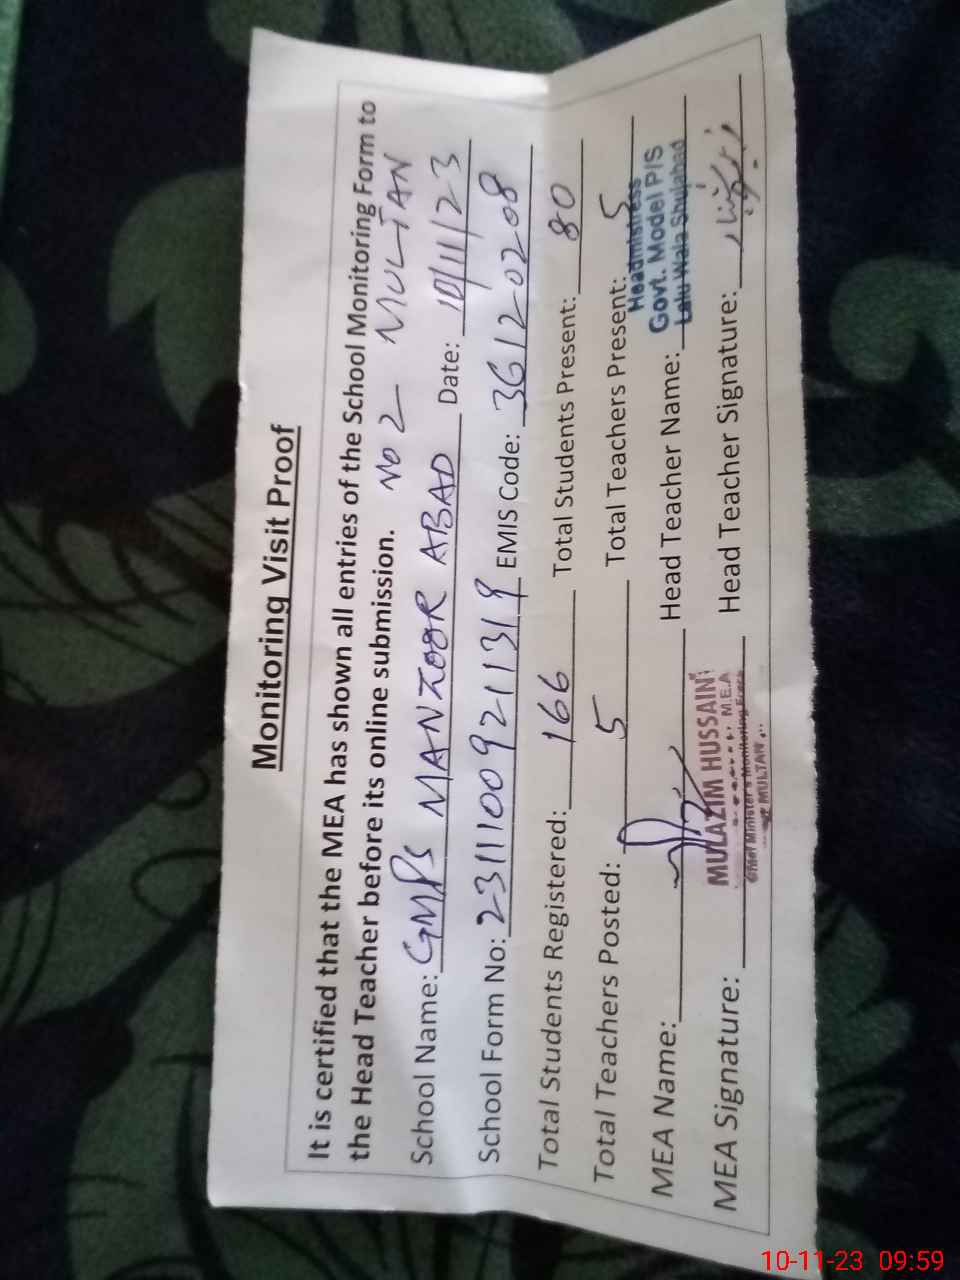 Monitoring Visit Proof
It is certified that the MEA has shown all entries of the School Monitoring Form to
the Head Teacher before its online submission. NO 2 MULTAN
School Name: GMPS MANZOOR ABAD Date: 10/11/23
School Form No: 23111009211319 EMIS Code: 36120208
Total Students Registered: 166 Total Students Present: 80
Total Teachers Posted: 5 Total Teachers Present: 5
Headmistress
Govt. Model P/S
Lalu Wala Shujabad
MEA Name: Head Teacher Name:
MULAZIM HUSSAIN
M.E.A
Chief Minister's Monitoring Force
MULTAN
MEA Signature: Head Teacher Signature:
10-11-23 09:59